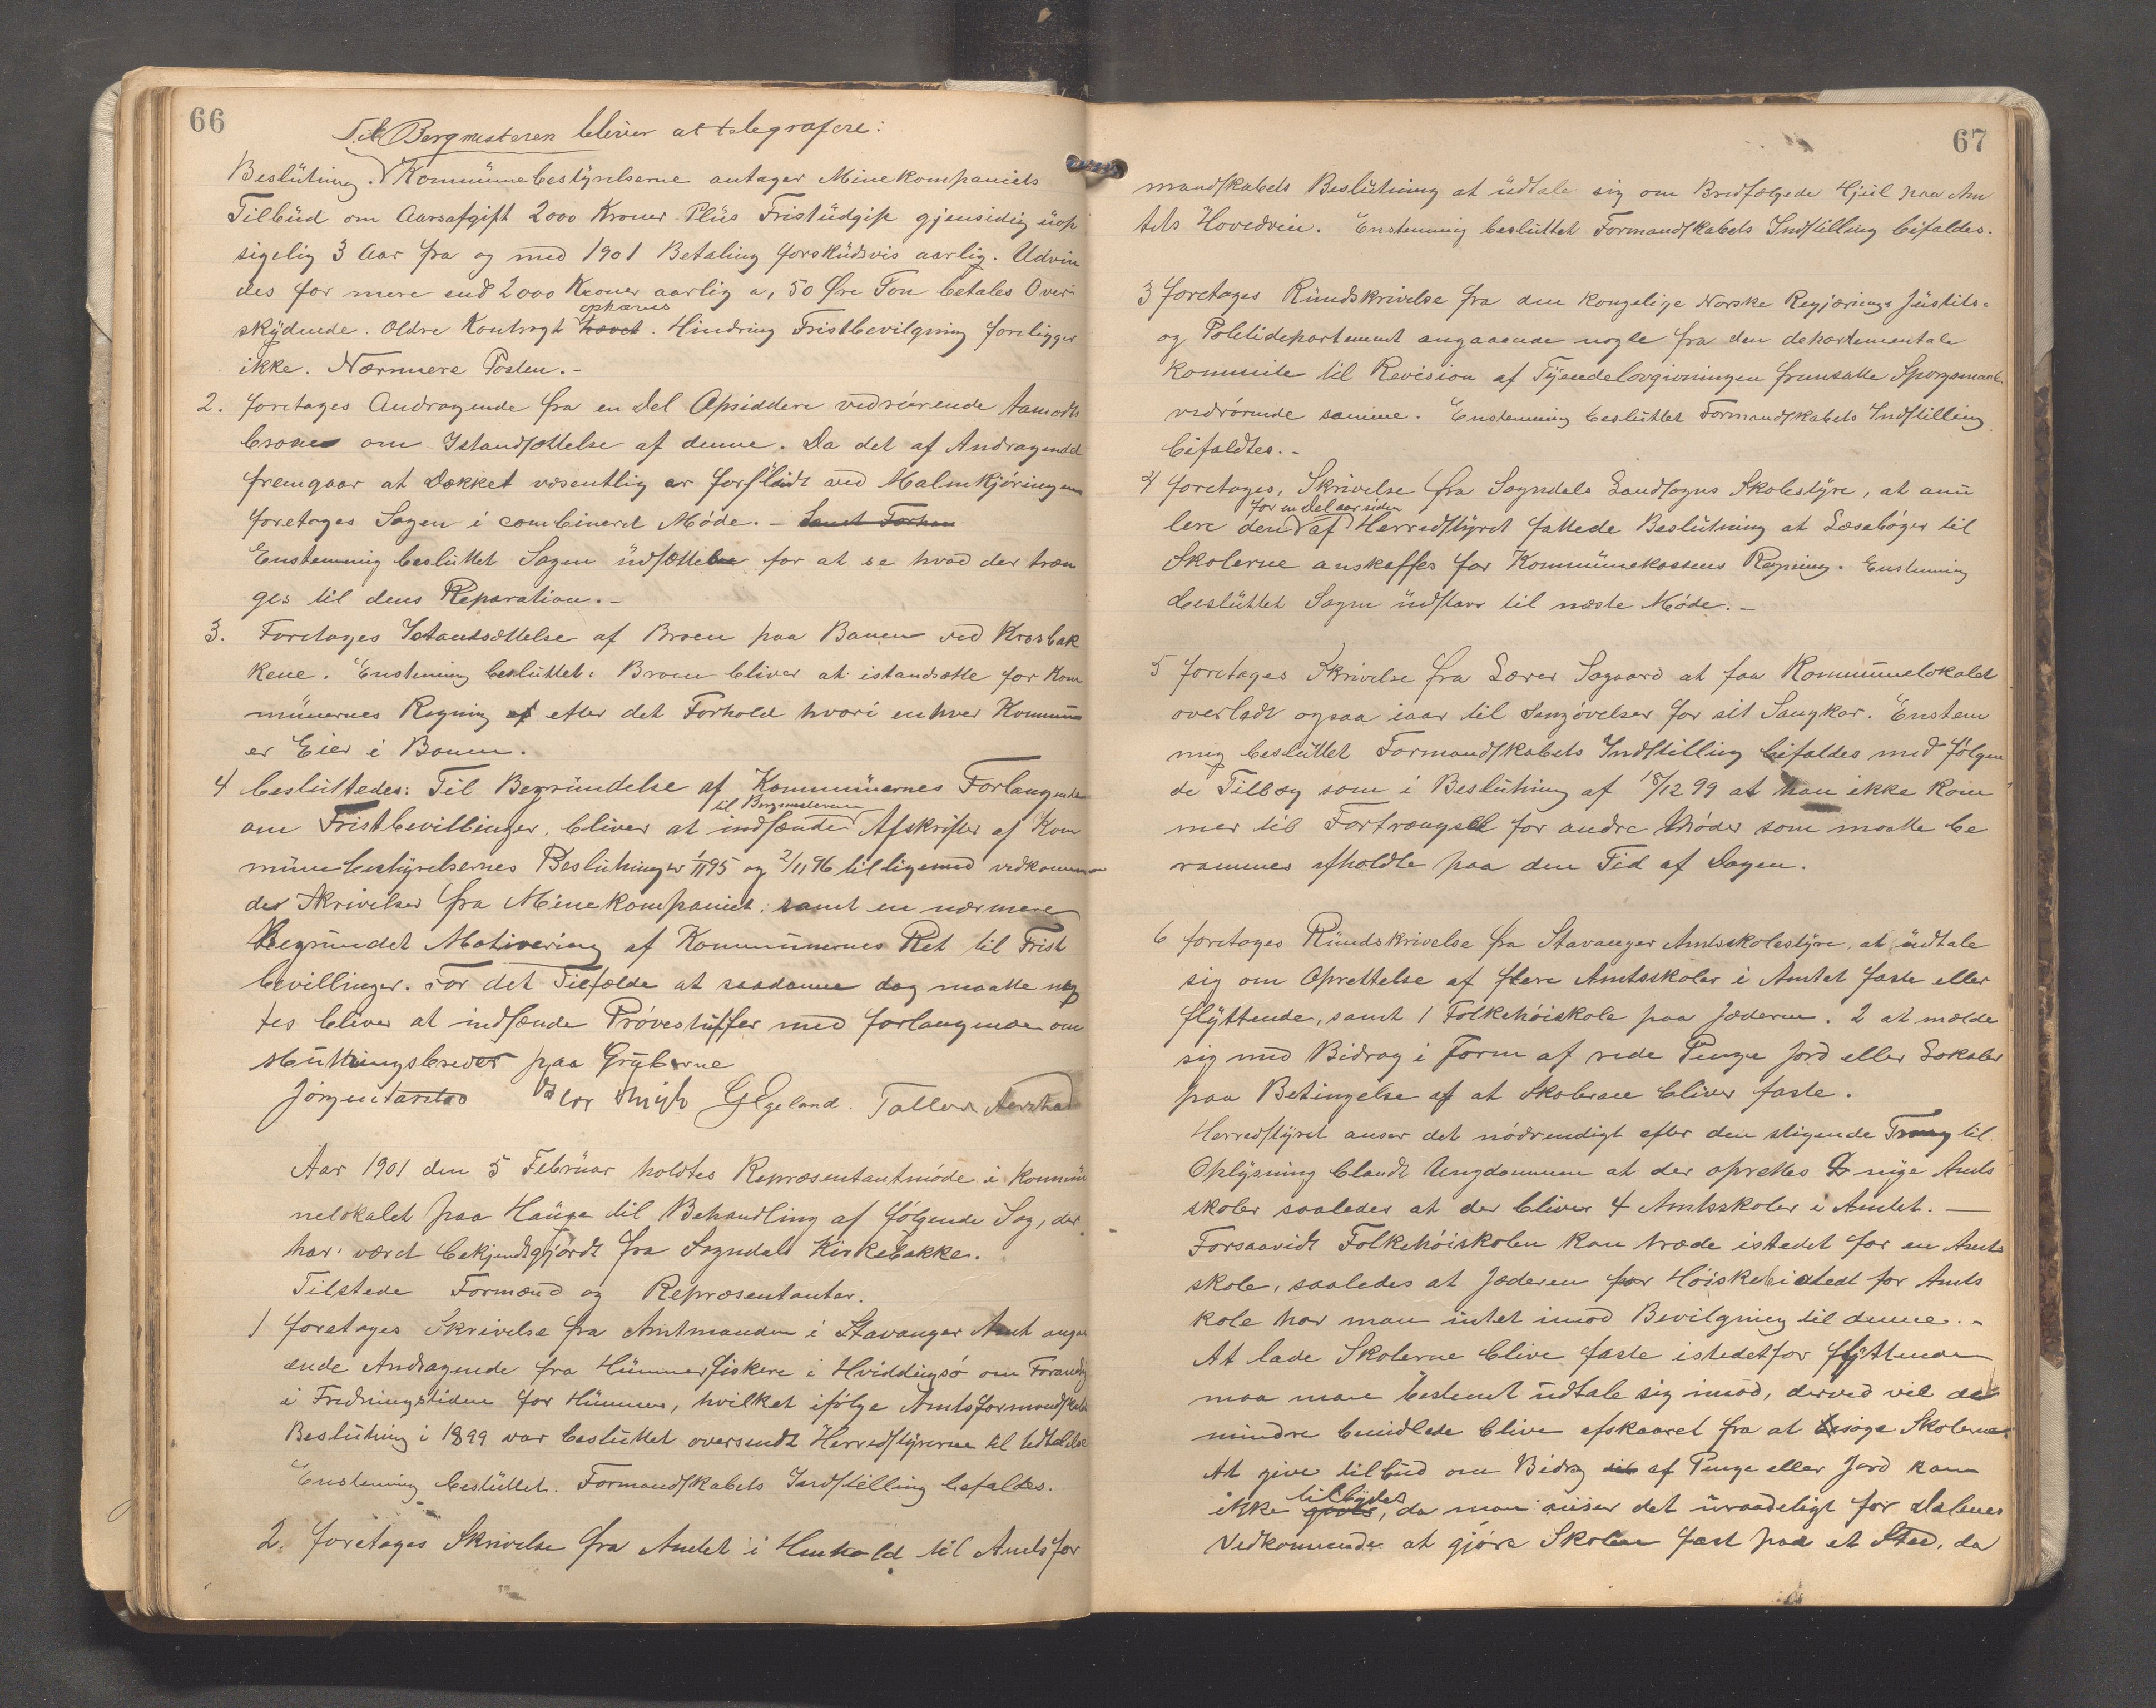 66
Til Bergmesteren bliver at telegrafere:
Beslutning. Kommünebestyrelserne antager Minekompaniets
Tilbüd om Aarsafgift 2000 Kroner Plüs Fristüdgift gjensidig üop
sigelig 3 Aar fra og med 1901 Betaling forsküdsvis aarlig. Udvin
des for mere end 2000 Kroner aarlig a, 50 Øre Ton betales Over
ophæves
skydende. Ældre Kontragt hævet. Hindring Fristbevilgning foreligger
ikke. Nærmere Posten.-
2. foretages Andragende fra en Del Opsiddere vedrørende Aamodts
broen om Istandsættelse af denne. Da det af Andragendet
fremgaar at Dækket væsentlig er forslidt ved Malmkjøringen
foretages Sagen i combineret Møde. - Samt Forhen
Enstemmig besluttet Sagen üdsættes for at se hvad der træn
ges til dens Reparation.-
3. Foretages Istandsættelse af Broen paa Banen ved Krosbak
kene. Enstemmig beslüttet: Broen bliver at istandsætte for Kom
münernes Regning af efter det Forhold hvori enhver Kommüne
er Eier i Banen.
4 besluttedes: Til Begründelse af Kommünernes Forlangende
til Bergmesteren
om Fristbevillinger, bliver at indsænde Afskrifter af Kom
münebestyrelsernes Beslütninger 1/11 95 og 2/11 96 tilligemed vedkommen
des Skrivelser fra Minekompaniet, samt en nærmere
Begründet Motivering af Kommünernes Ret til Frist
bevillinger. For det Tilfælde at saadanne dog maatte næg
tes bliver at indsænde Prøvestuffer med forlangende om
Mütningsbrever paa Grüberne
Jørgen Aarstad G Egeland. Tallev Aarstad
Aar 1901 den 5 Februar holdtes Repræsentantmøde i Kommü
nelokalet paa Haüge til Behandling af følgende Sag, der
har været bekjendtgjordt fra Sogndals Kirkebakke.
Tilstede Formænd og Repræsentanter.
1 foretages Skrivelse fra Amtmanden i Stavanger Amt angaa
ende Andragende fra Hümmerfiskere i Hviddingsø om Forandring
i Fredningstiden for Hümmer, hvilket ifølge Amtsformandskabets
Beslütning i 1899 var besluttet oversendt Herredstyrerne til Udtalelse
Enstemmig beslüttet. Formandskabets Indstilling befaldes.
2. foretages Skrivelse fra Amtet i Henhold til Amtsfor
67
mandskabets Beslütning at üdtale sig om Bredfælgede Hjül paa Am
tets Hovedvei. Enstemmig besluttet Formandskabets Indstilling bifaldes.
3 foretages Ründskrivelse fra den Kongelige Norske Regjærings Jüstits-
og Politidepartement angaaende nogle fra den departementale
Komite til Revision af Tyendelovgivningen fremsatte Spørgsmaal
vedrørende samme. Enstemmig besluttet Formandskabets Indstilling
bifaldtes.-
4 foretages, Skrivelse fra Sogndals Landsogns Skolestyre, at anü
for en Del aar siden
lere den af Herredstyret fattede Beslutning at Læsebøger til
Skolerne anskaffes for Kommünekassens Regning. Enstemmig
besluttet Sagen üdstaar til næste Møde.-
5 foretages Skrivelse fra Lærer Sagaard at faa Kommünelokalet
overladt ogsaa iaar til Sangøvelser for sit Sangkor. Enstem
mig beslüttet Formandskabets Indstilling bifaldes med følgen
de Tillæg som i Beslutning af 18/12 99 at han ikke kom
mer til Fortrængsel for andre Møder som maatte be
rammes afholdte paa den Tid af Dagen.
6 foretages Ründskrivelse fra Stavanger Amtsskolestyre, at üdtale
sig om Oprettelse af flere Amtsskoler i Amtet faste eller
flyttende, samt 1 Folkehøiskole paa Jæderen. 2 at melde
sig med Bidrag i Form af rede Penge Jord eller Lokaler
paa Betingelse af at Skolerne bliver faste.
Herredstyret anser det nødvendigt efter den stigende Trang til
Oplysning blandt Ungdommen at der oprettes 2 nye Amts
skoler saaledes at der bliver 4 Amtsskoler i Amtet. -
Forsaavidt Folkehøiskolen kan træde istedet for en Amts
skole, saaledes at Jæderen faar Høiskole istedt for Amts
kole har man intet imod Bevilgning til denne. -
At lade Skolerne blive faste istedetfor flyttende
maa man bestemt üdtale sig imod, derved vil de
mindre bemidlede blive afskaaret fra at besøge Skolerne.
At give tilbud om Bidrag til af Penge eller Jord kan
tilbydes
ikke gives, da man anser det üraadeligt for Dalenes
Vedkommende at gjøre Skolen fast paa et Sted, da